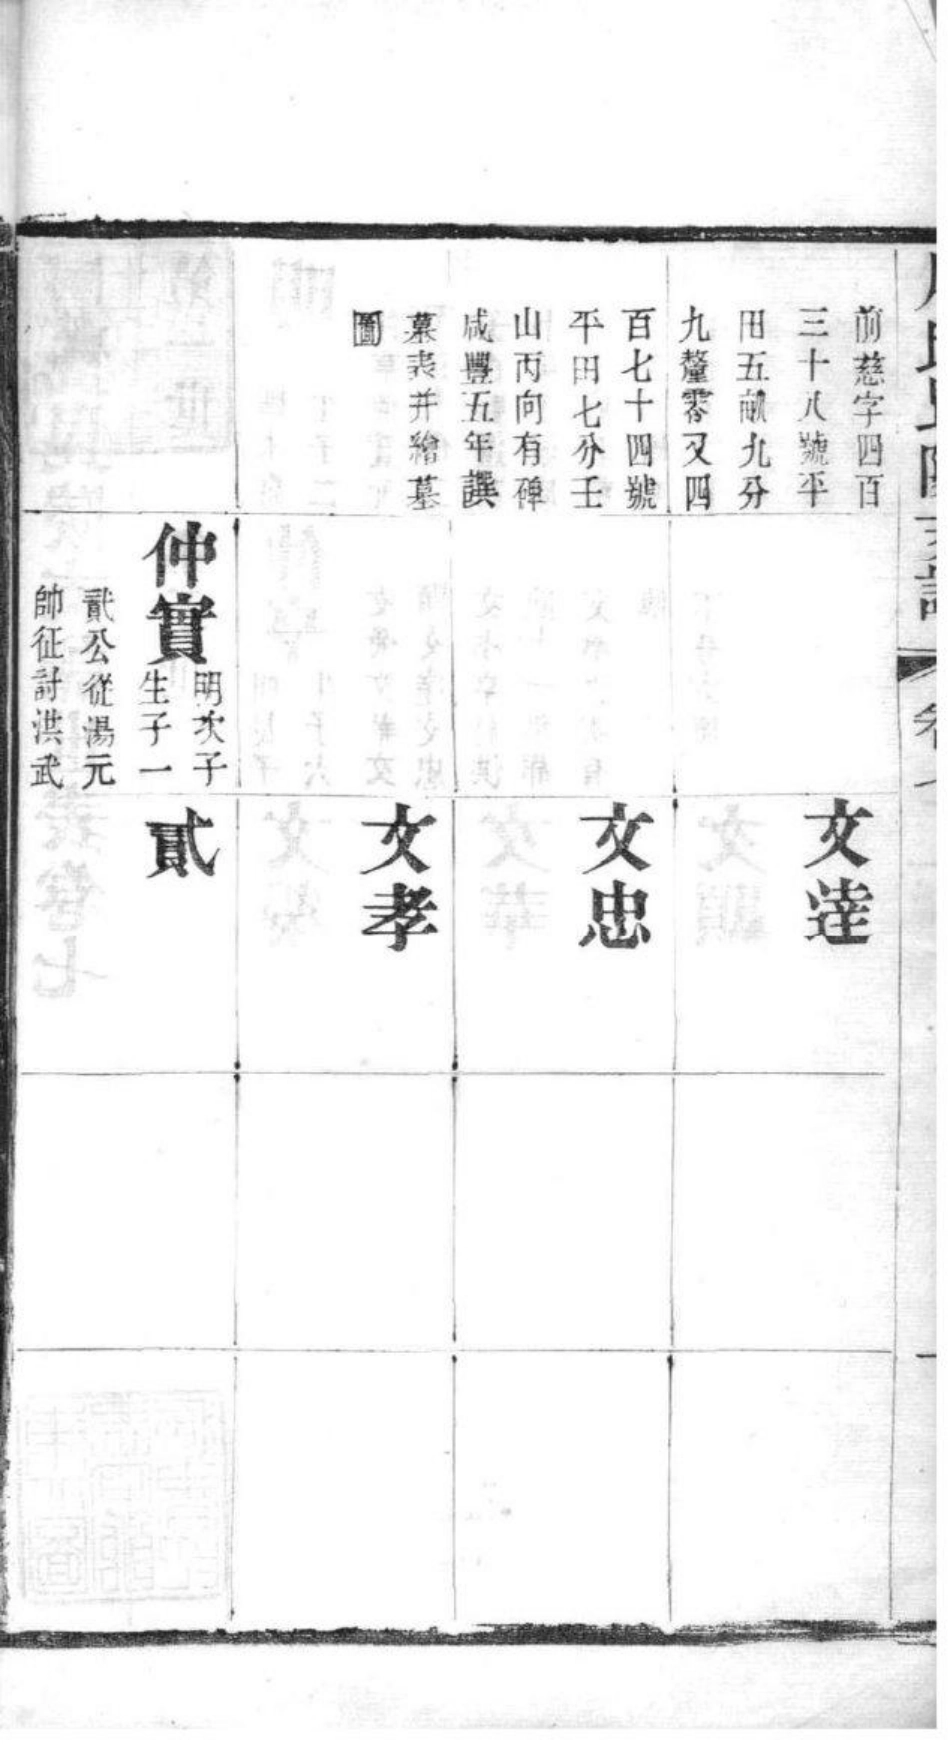 前慈字四百
三十八號平
田五畝九分
九釐零又四
百七十四號
平田七分壬
山丙向有碑
咸豐五年譔
墓表并繪墓
圖
仲實
明次子
生子一
貳公從湯元
帥征討洪武
文達
文忠
文孝
貳